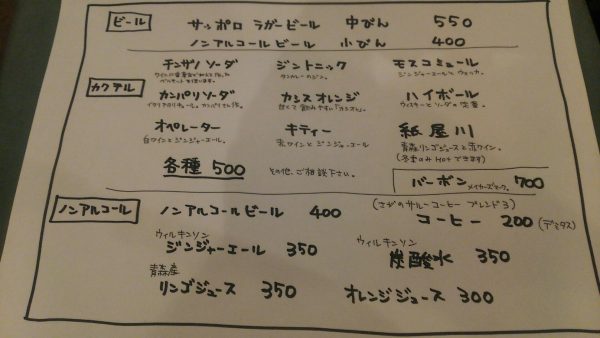 ビール サッポロ ラガービール 中びん 550
ノンアルコールビール 小びん 400
カクテル チンザノソーダ ジントニック モスコミュール
タンカレーのジン。 ジンジャーエールとウォッカ。
カンパリソーダ カシスオレンジ ハイボール
甘くて飲みやすい「カシオレ」。 ウィスキーとソーダの定番。
オペレーター キティー 紙屋川
白ワインとジンジャーエール 赤ワインとジンジャーエール 青森リンゴジュースと赤ワイン。
(冬季のみHotできます)
各種 500 その他、ご相談下さい。
バーボン メイカーズマーク。 700
ノンアルコール ノンアルコールビール 400 (さがのサルーコーヒー ブレンド3)
コーヒー 200 (デミタス)
ウィルキンソン ウィルキンソン
ジンジャーエール 350 炭酸水 350
青森産
リンゴジュース 350 オレンジジュース 300